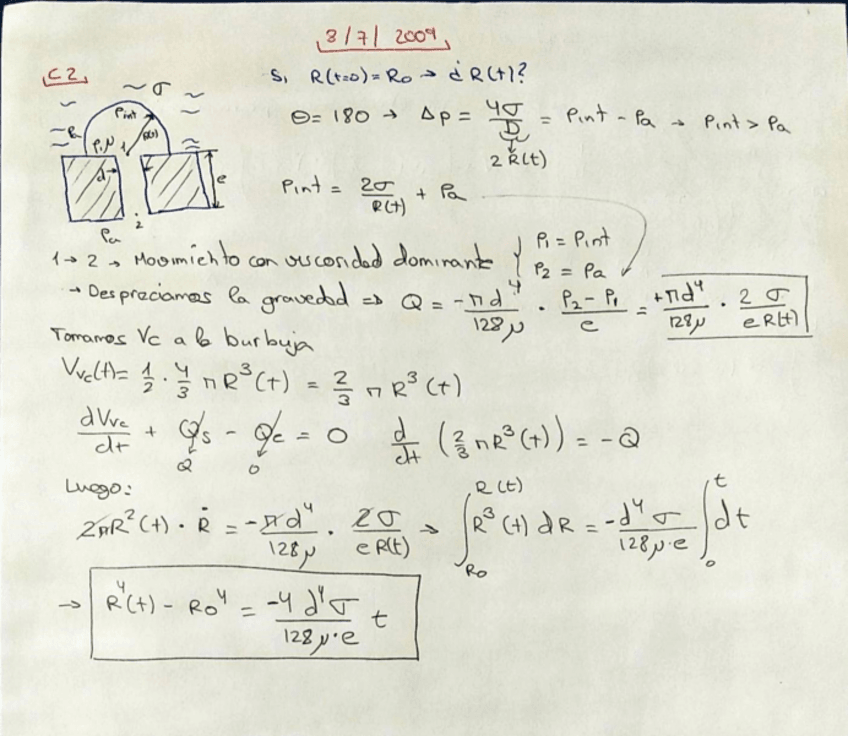 3/7/2009
C2
Si R(t=0) = R₀ → ¿R(t)?
σ
Pint
R(t)
Pa
ρ, μ
1
d
e
2
Pa
θ = 180 → Δp = 4σ/D = Pint - Pa → Pint > Pa
2R(t)
Pint = 2σ/R(t) + Pa
1 → 2 → Movimiento con viscosidad dominante { P₁ = Pint
P₂ = Pa
→ Despreciamos la gravedad ⇒ Q = -πd⁴/128μ · (P₂ - P₁)/e = +πd⁴/128μ · 2σ/eR(t)
Tomamos Vc a la burbuja
Vvc(t) = 1/2 · 4/3 πR³(t) = 2/3 πR³(t)
dVvc/dt + Qs - Qe = 0 d/dt (2/3 πR³(t)) = -Q
Q 0
Luego:
2πR²(t) · Ṙ = -πd⁴/128μ · 2σ/eR(t) → ∫_{R₀}^{R(t)} R³(t) dR = -d⁴σ/128μ·e ∫₀^t dt
→ R⁴(t) - R₀⁴ = -4d⁴σ/128μ·e t